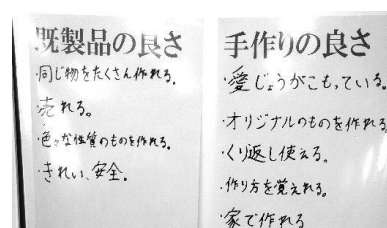 既製品の良さ
・同じ物をたくさん作れる。
・売れる。
・色々な性質のものを作れる。
・きれい、安全。
手作りの良さ
・愛じょうがこもっている。
・オリジナルのものを作れる
・くり返し使える。
・作り方を覚えれる。
・家で作れる